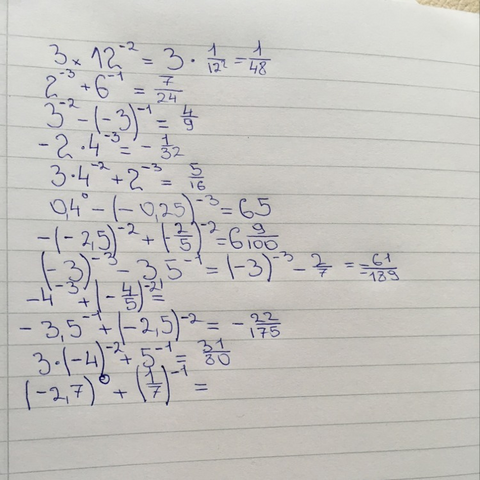 3 × 12⁻² = 3 · 1/12² = 1/48
2⁻³ + 6⁻¹ = 7/24
3⁻² - (-3)⁻¹ = 4/9
- 2 · 4⁻³ = - 1/32
3 · 4⁻² + 2⁻³ = 5/16
0,4⁰ - (-0,25)⁻³ = 65
-(-2,5)⁻² + (-2/5)⁻² = 6 9/100
(-3)⁻³ - 3,5⁻¹ = (-3)⁻³ - 2/7 = -61/-189
-4⁻³ + (-4/5)⁻² =
- 3,5⁻¹ + (-2,5)⁻² = - 22/175
3 · (-4)⁻² + 5⁻¹ = 31/80
(-2,7)⁰ + (1/7)⁻¹ =